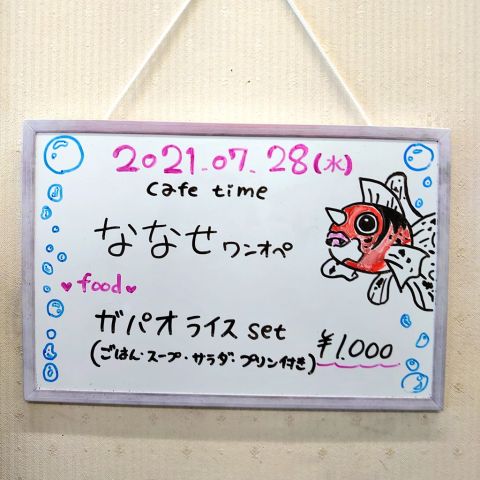 2021.07.28(水)
cafe time
ななせ ワンオペ
♥food♥
ガパオライス set
(ごはん・スープ・サラダ・プリン付き) ¥1.000